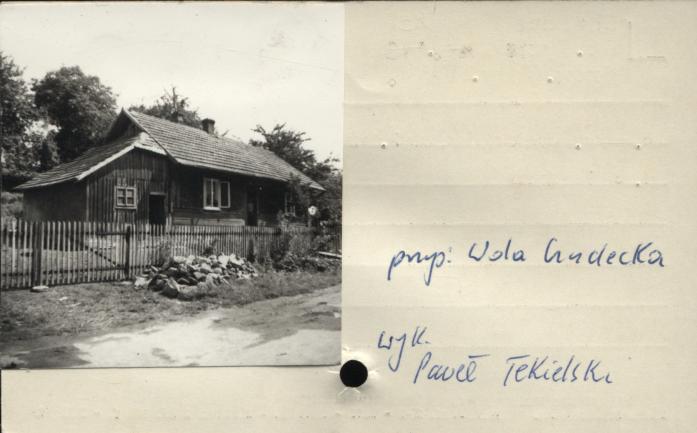 przyp: Wola Chudecka
wyk.
Paweł Tekielski